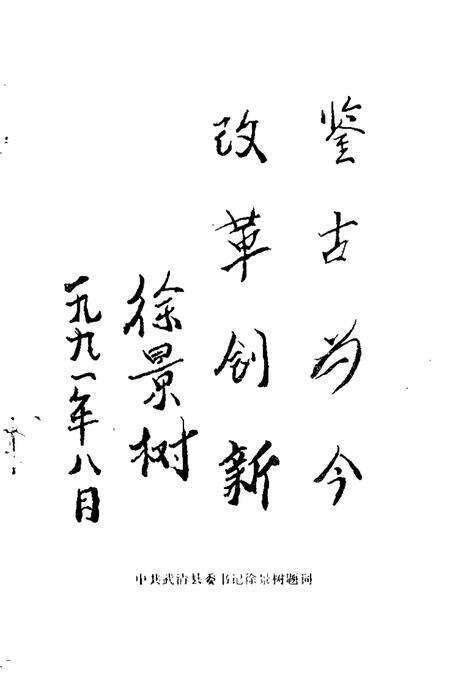 鉴古为今
改革创新
徐景树
一九九一年八月
中共武清县委书记徐景树题词